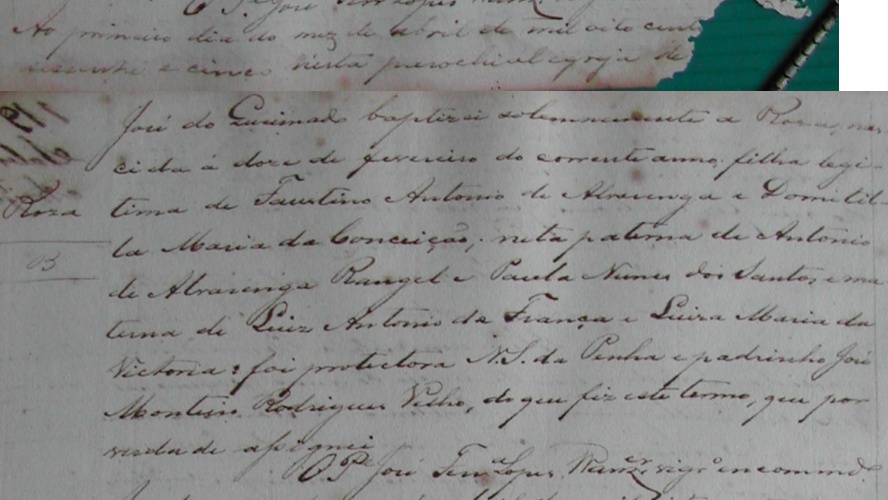 O P.e José
Ao primeiro dia do mez de abril de mil oito cent
sessenta e cinco nesta parochial egreja de
José do Queimado baptizei solemnemente a Roza, nas
cida á doze de fevereiro do corrente anno, filha legi-
Roza
tima de Faustino Antonio de Alvarenga e Domitil
la Maria da Conceição, neta paterna de Antonio
B
de Alvarenga Rangel e Paula Nunes dos Santos, e ma
terna de Luiz Antonio da França e Luiza Maria da
Victoria: foi protectora N. S. da Penha e padrinho José
Monteiro Rodrigues Velho, do que fiz este termo, que por
verdade assignei
O P.e José Lopes vigr.o encommd.o